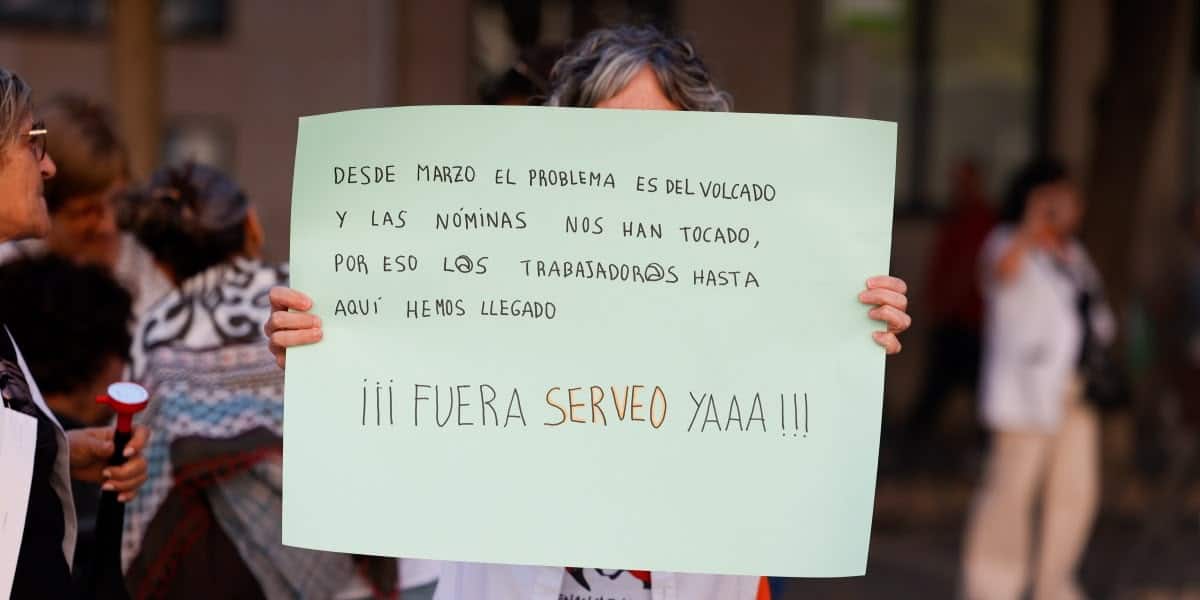 DESDE MARZO EL PROBLEMA ES DEL VOLCADO
Y LAS NÓMINAS NOS HAN TOCADO,
POR ESO L@S TRABAJADOR@S HASTA
AQUÍ HEMOS LLEGADO
¡¡¡ FUERA SERVEO YAAA !!!